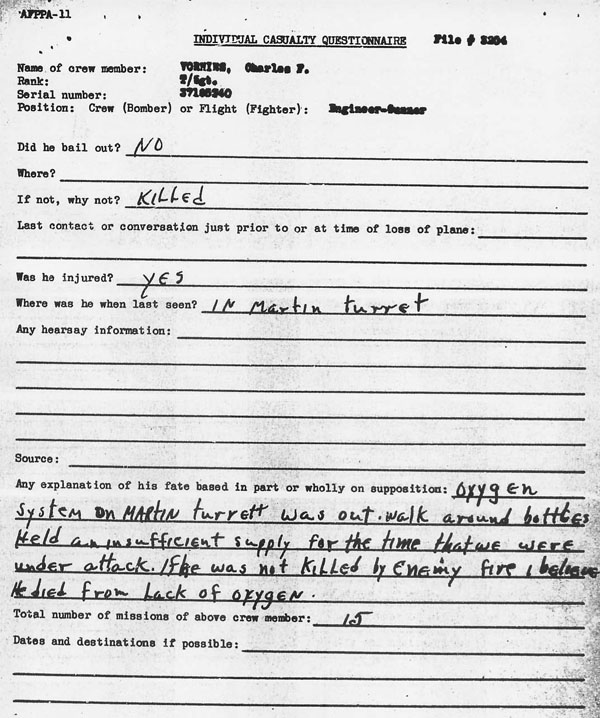 AFPPA-11
INDIVIDUAL CASUALTY QUESTIONNAIRE File # 3204
Name of crew member: Charles F.
Rank: T/Sgt.
Serial number:
Position: Crew (Bomber) or Flight (Fighter): Engineer-Gunner
Did he bail out? NO
Where?
If not, why not? KILLED
Last contact or conversation just prior to or at time of loss of plane:
Was he injured? YES
Where was he when last seen? IN Martin turret
Any hearsay information:
Source:
Any explanation of his fate based in part or wholly on supposition: OXYGEN
System ON MARTIN turrett was out. walk around bottles
Held an insufficient supply for the time that we were
under attack. If he was not killed by ENEMY fire I believe
He died from Lack of OXYGEN.
Total number of missions of above crew member: 15
Dates and destinations if possible: